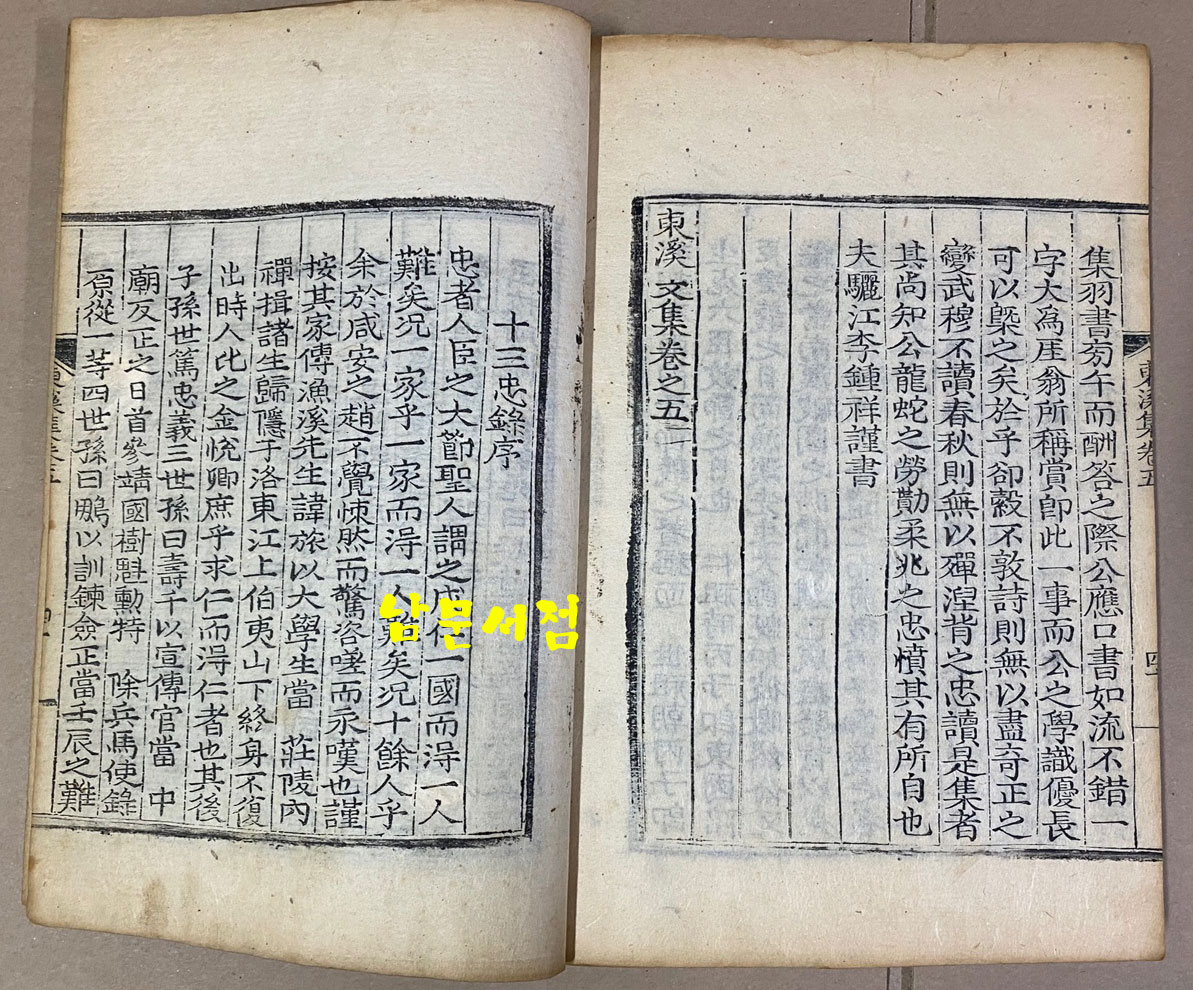 集羽書旁午而酬答之際公應口書如流不錯一
字大為厓翁所稱賞卽此一事而公之學識優長
可以槩之矣於乎卻縠不敦詩則無以盡奇正之
變武穆不讀春秋則無以殫湼背之忠讀是集者
其尚知公龍蛇之勞勩柔兆之忠憤其有所自也
夫驪江李鍾祥謹書
東溪文集卷之五
十三忠錄序
忠者人臣之大節聖人謂之成仁一國而淂一人
難矣况一家乎一家而淂一人難矣况十餘人乎
余於咸安之趙不覺悚然而驚咨嗟而永嘆也謹
按其家傳漁溪先生諱旅以大學生當 莊陵內
禪揖諸生歸隱于洛東江上伯夷山下終身不復
出時人比之金悅卿庶乎求仁而淂仁者也其後
子孫世篤忠義三世孫曰壽千以宣傳官當 中
廟反正之日首參靖國樹魁勳特 除兵馬使錄
原從一等四世孫曰鵬以訓鍊僉正當壬辰之難
東溪集卷五
남문서점